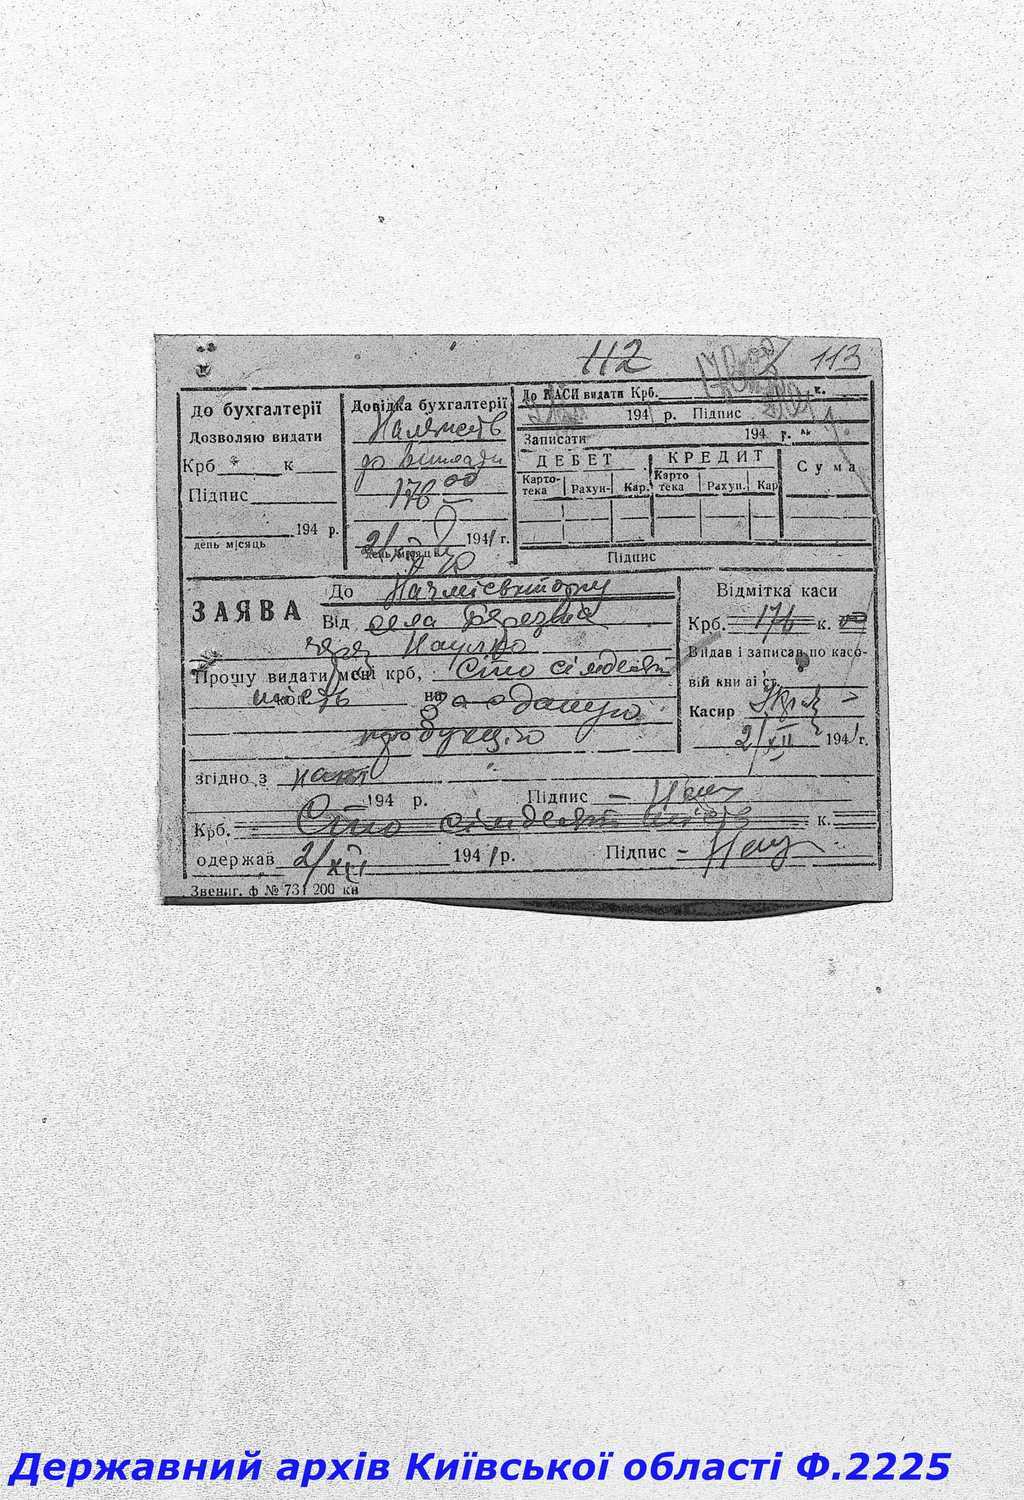 112 113
До бухгалтерії
Дозволяю видати
Крб к
Підпис
194 р.
день місяць
Довідка бухгалтерії
Належить
до виплати
176 00
2/XII 1941 г.
день місяць
До КАСИ видати Крб. 176 00 к.
194 р. Підпис
Записати 194 р.
ДЕБЕТ КРЕДИТ Сума
Карто-тека Рахун- Кар. Карто тека Рахун. Кар
Підпис
ЗАЯВА
До
Від села
через
Прошу видати мені крб, Сто сімдесят
шість на здану
продукцію
згідно з
194 р. Підпис
Крб. Сто сімдесят шість к.
одержав 2/XII 1941 р. Підпис
Відмітка каси
Крб. 176 к. 00
Видав і записав по касо-
вій книзі ст.
Касир
2/XII 1941 г.
Звениг. ф № 731 200 кн
Державний архів Київської області Ф.2225